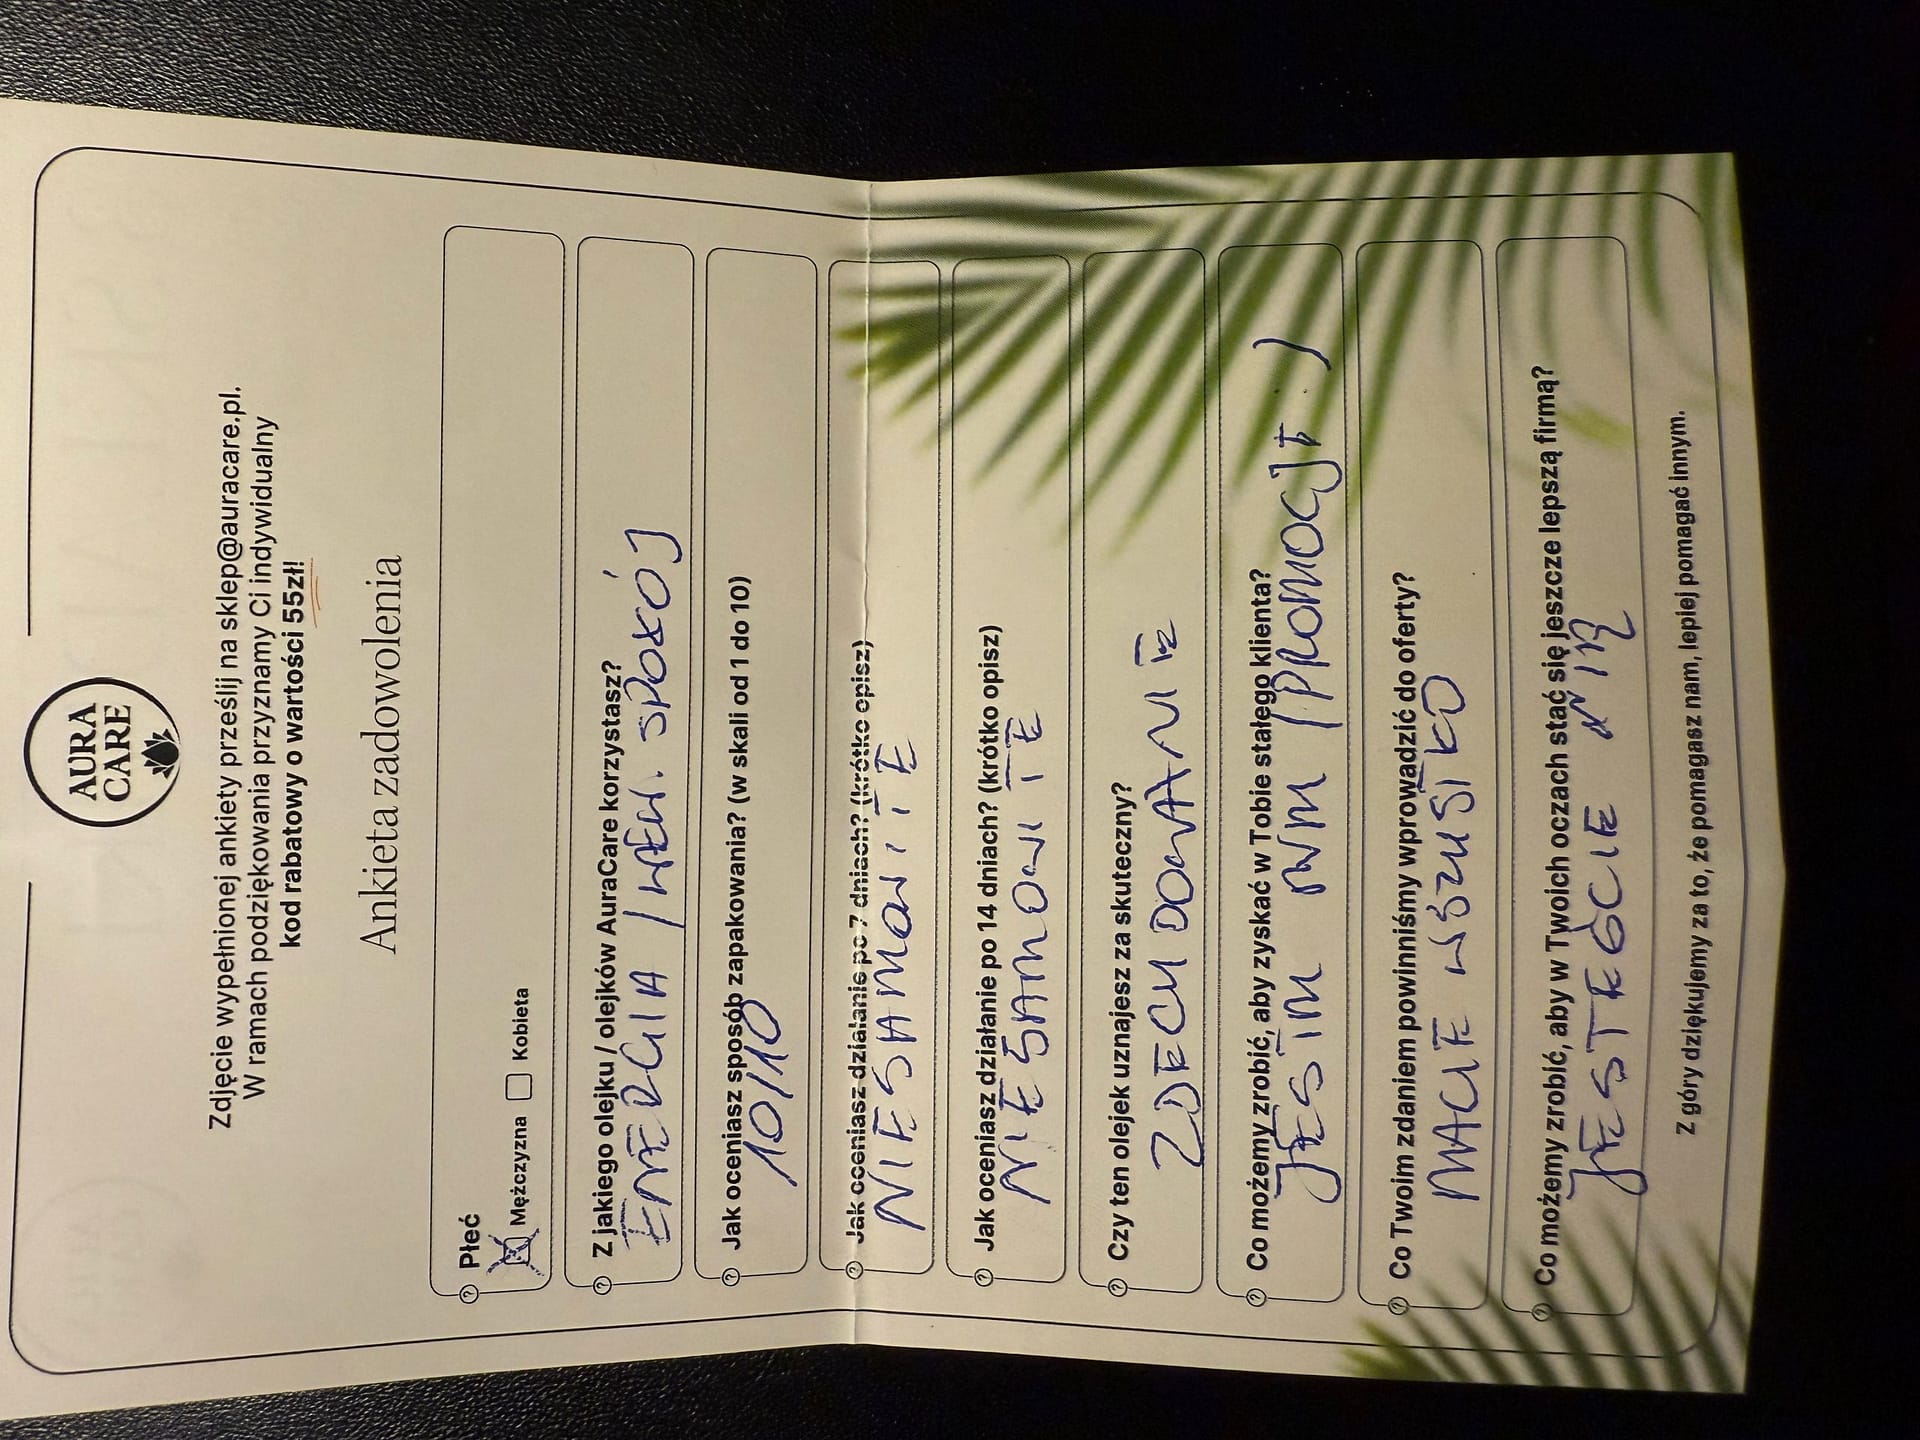 AURA
CARE
Zdjęcie wypełnionej ankiety prześlij na sklep@auracare.pl.
W ramach podziękowania przyznamy Ci indywidualny
kod rabatowy o wartości 55zł!
Ankieta zadowolenia
Płeć
Mężczyzna Kobieta
Z jakiego olejku / olejków AuraCare korzystasz?
ENERGIA / WEW. SPOKÓJ
Jak oceniasz sposób zapakowania? (w skali od 1 do 10)
10/10
Jak oceniasz działanie po 7 dniach? (krótko opisz)
NIESAMOWITE
Jak oceniasz działanie po 14 dniach? (krótko opisz)
NIESAMOWITE
Czy ten olejek uznajesz za skuteczny?
ZDECYDOWANIE
Co możemy zrobić, aby zyskać w Tobie stałego klienta?
JESTEM NIM / PROMOCJE :)
Co Twoim zdaniem powinniśmy wprowadzić do oferty?
MACIE WSZYSTKO
Co możemy zrobić, aby w Twoich oczach stać się jeszcze lepszą firmą?
JESTEŚCIE NIĄ
Z góry dziękujemy za to, że pomagasz nam, lepiej pomagać innym.